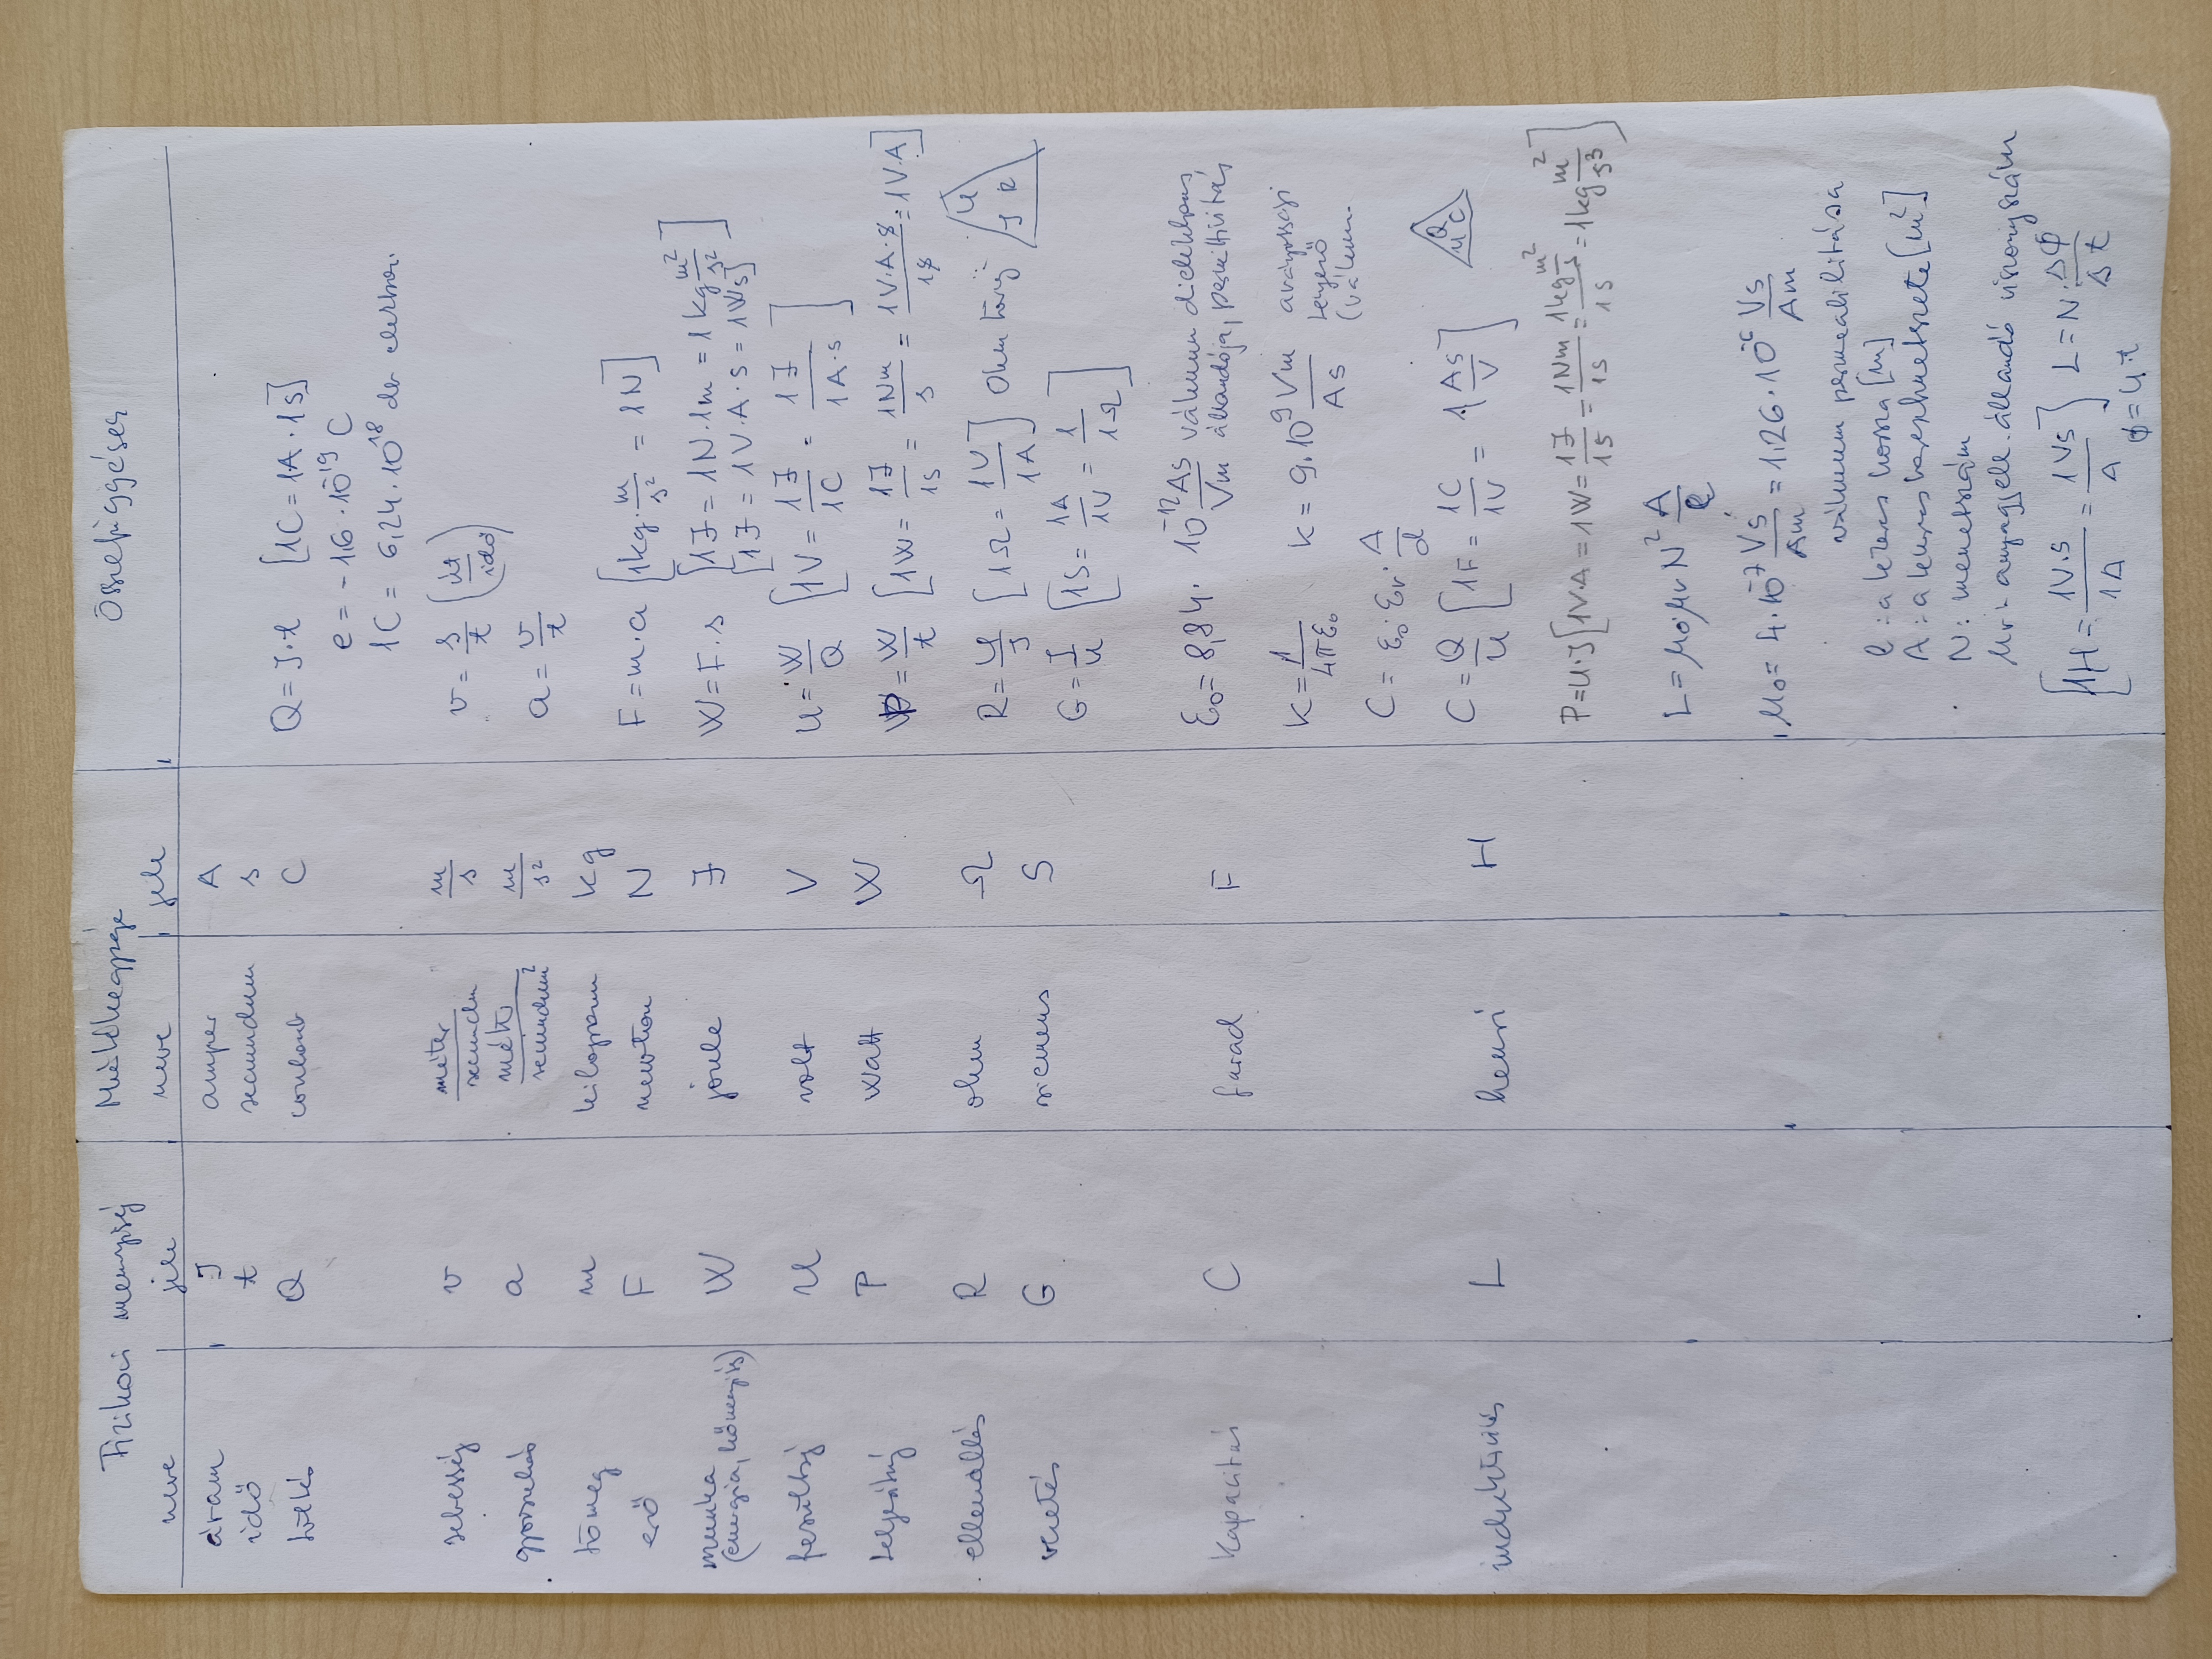 Fizikai mennyiség Mértékegysége Összefüggések
neve jele neve jele
áram I amper A
idő t secundum s
töltés Q coulomb C Q = I·t [1C = 1A · 1s]
e = -1,6 · 10⁻¹⁹ C
1C = 6,24 · 10¹⁸ db elektron
sebesség v méter/secundum m/s v = s/t (út/idő)
gyorsulás a méter/secundum² m/s² a = v/t
tömeg m kilogramm kg
erő F newton N F = m·a [1kg · m/s² = 1N]
munka (energia, hőmennyiség) W joule J W = F·s [1J = 1N·1m = 1kg m²/s²]
[1J = 1V·A·s = 1Ws]
feszültség U volt V U = W/Q [1V = 1J/1C = 1J/1A·s]
teljesítmény P watt W P = W/t [1W = 1J/1s = 1Nm/s = 1V·A·s/1s = 1V·A]
ellenállás R ohm Ω R = U/I [1Ω = 1V/1A] Ohm törv. U I R
vezetés G siemens S G = I/U [1S = 1A/1V = 1/1Ω]
Kapacitás C farad F ε₀ = 8,84 · 10⁻¹² As/Vm vákuum dielektromos
állandója, permittivitás
k = 1/4πε₀ k = 9·10⁹ Vm/As arányossági
tényező
(vákuum
C = ε₀·εr · A/d
C = Q/U [1F = 1C/1V = 1 As/V] Q U C
induktivitás L henri H
P = U·I [1V·A = 1W = 1J/1s = 1Nm/1s = 1kg m²/s/1s = 1kg m²/s³]
L = μ₀·μr N² A/l
μ₀ = 4·10⁻⁷ Vs/Am = 1,26·10⁻⁶ Vs/Am
vákuum permeabilitása
l : a tekercs hossza [m]
A : a tekercs keresztmetszete [m²]
N : menetszám
μr : anyagjell. állandó viszonyszám
[1H = 1V·s/1A = 1Vs/A] L = N · ΔΦ/Δt
Φ = U·t